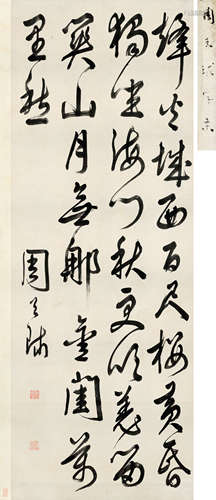 烽火城西百尺樓黃昏
獨坐海風秋更吹羌笛
關山月無那金閨萬
里愁
周天球
周天球字